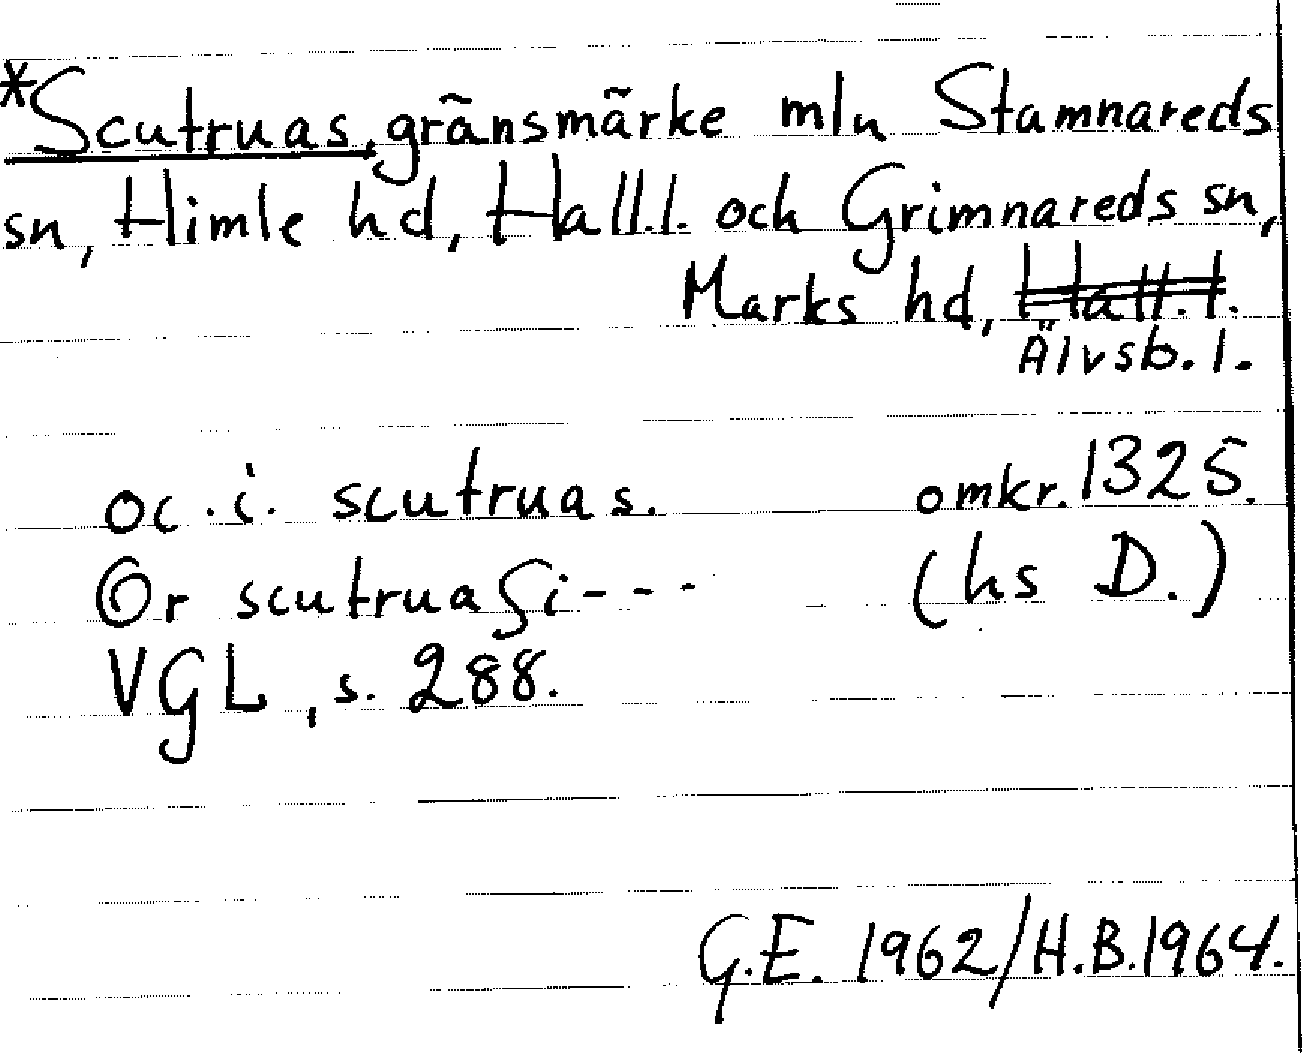 *Scutruas, gränsmärke mln Stamnareds
sn, Himle hd, Hall.l. och Grimnareds sn,
Marks hd, Hall.l.
Älvsb.l.
oc.i. scutruas. omkr. 1325.
Or scutruaſi--- (hs D.)
VGL, s. 288.
G.E. 1962/H.B.1964.